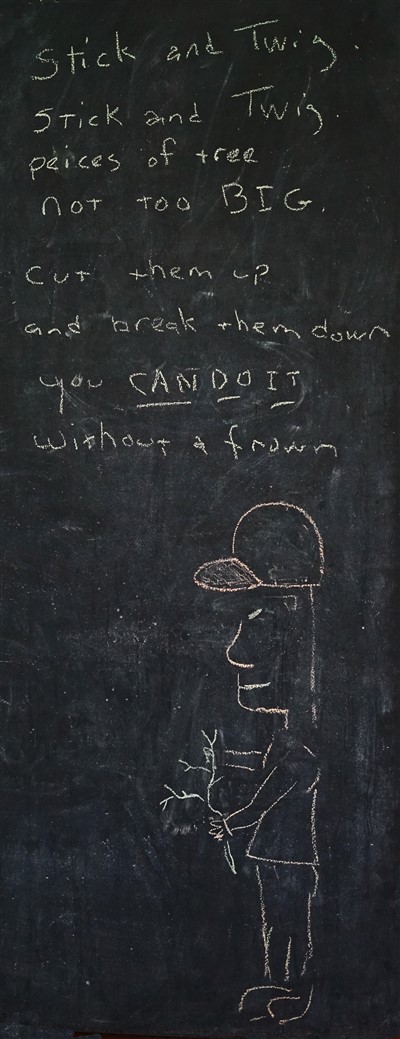 Stick and Twig.
Stick and Twig.
peices of tree
not too BIG.
cut them up
and break them down
you CAN DO IT
without a frown